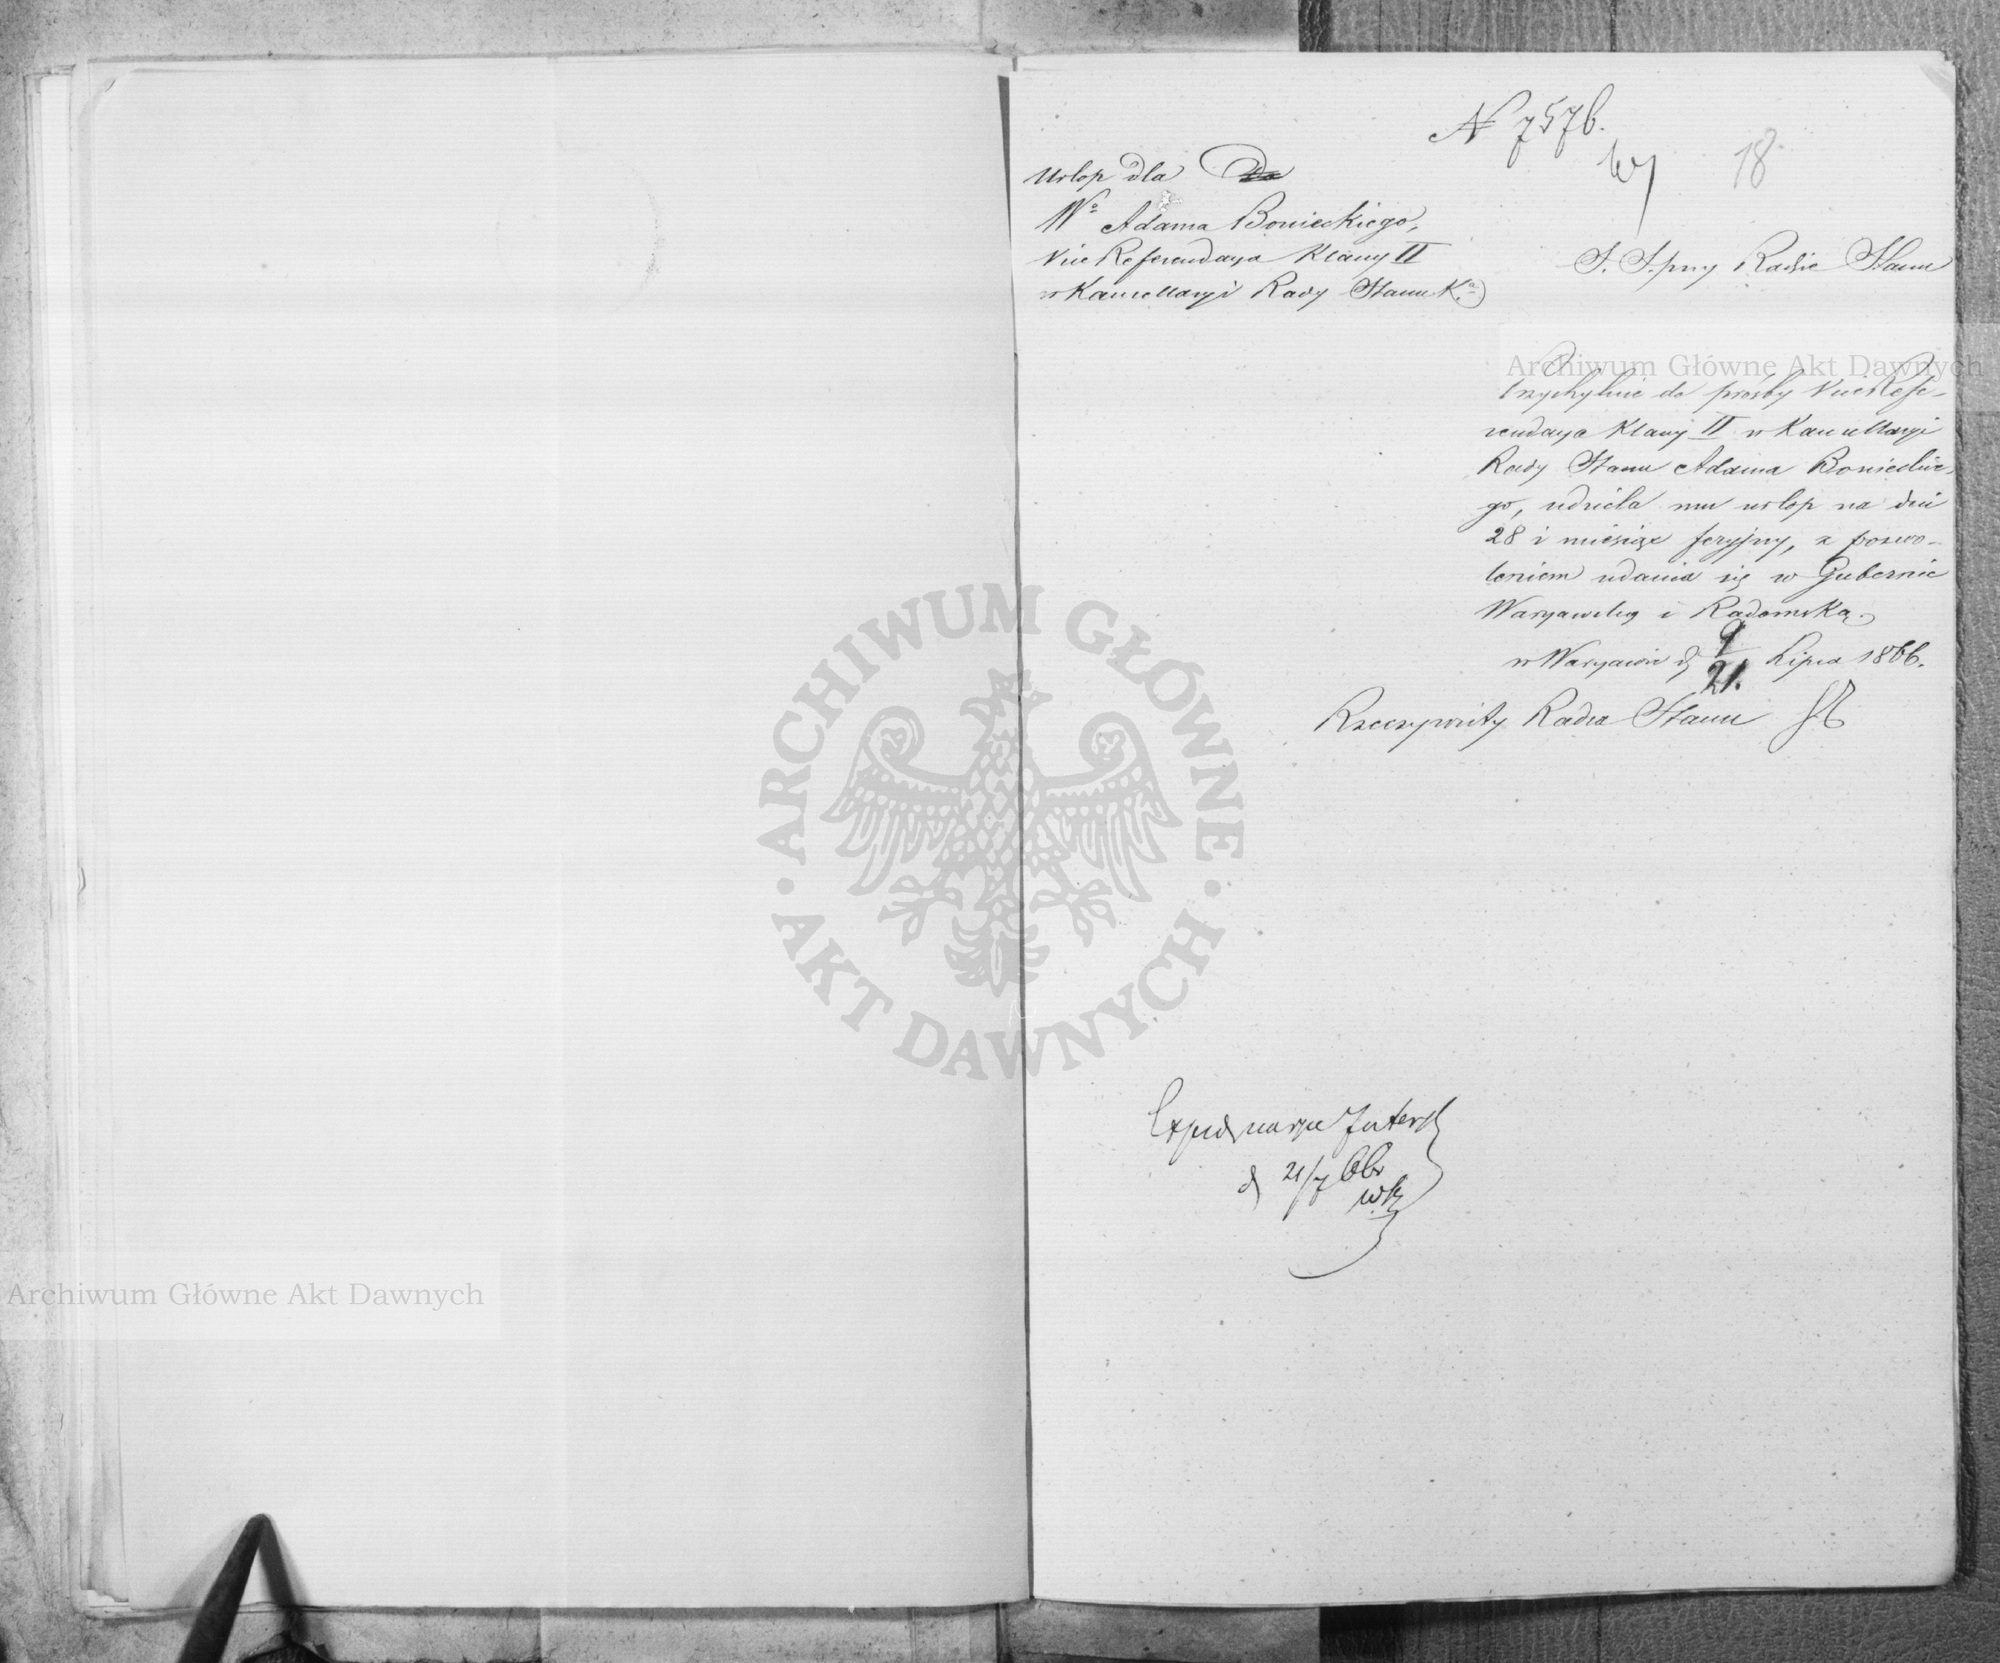 N 7576.
18
Urlop dla Do
Wº Adama Bonieckiego,
Vice Referendarza Klassy II
w Kancellaryi Rady Stanu K.º
S. S. przy Radzie Stanu
Przychylnie do prośby Vice Refe-
rendarza Klassy II w Kancellaryi
Rady Stanu Adama Bonieckie-
go, udziela mu urlop na dni
28 i miesiąc feryjny, z pozwo-
leniem udania się w Gubernie
Warszawską i Radomską.
w Warszawie d 9/21. Lipca 1866.
Rzeczywisty Radca Stanu
d 21/7 66
Archiwum Główne Akt Dawnych
ARCHIWUM GŁÓWNE
AKT DAWNYCH
Archiwum Główne Akt Dawnych